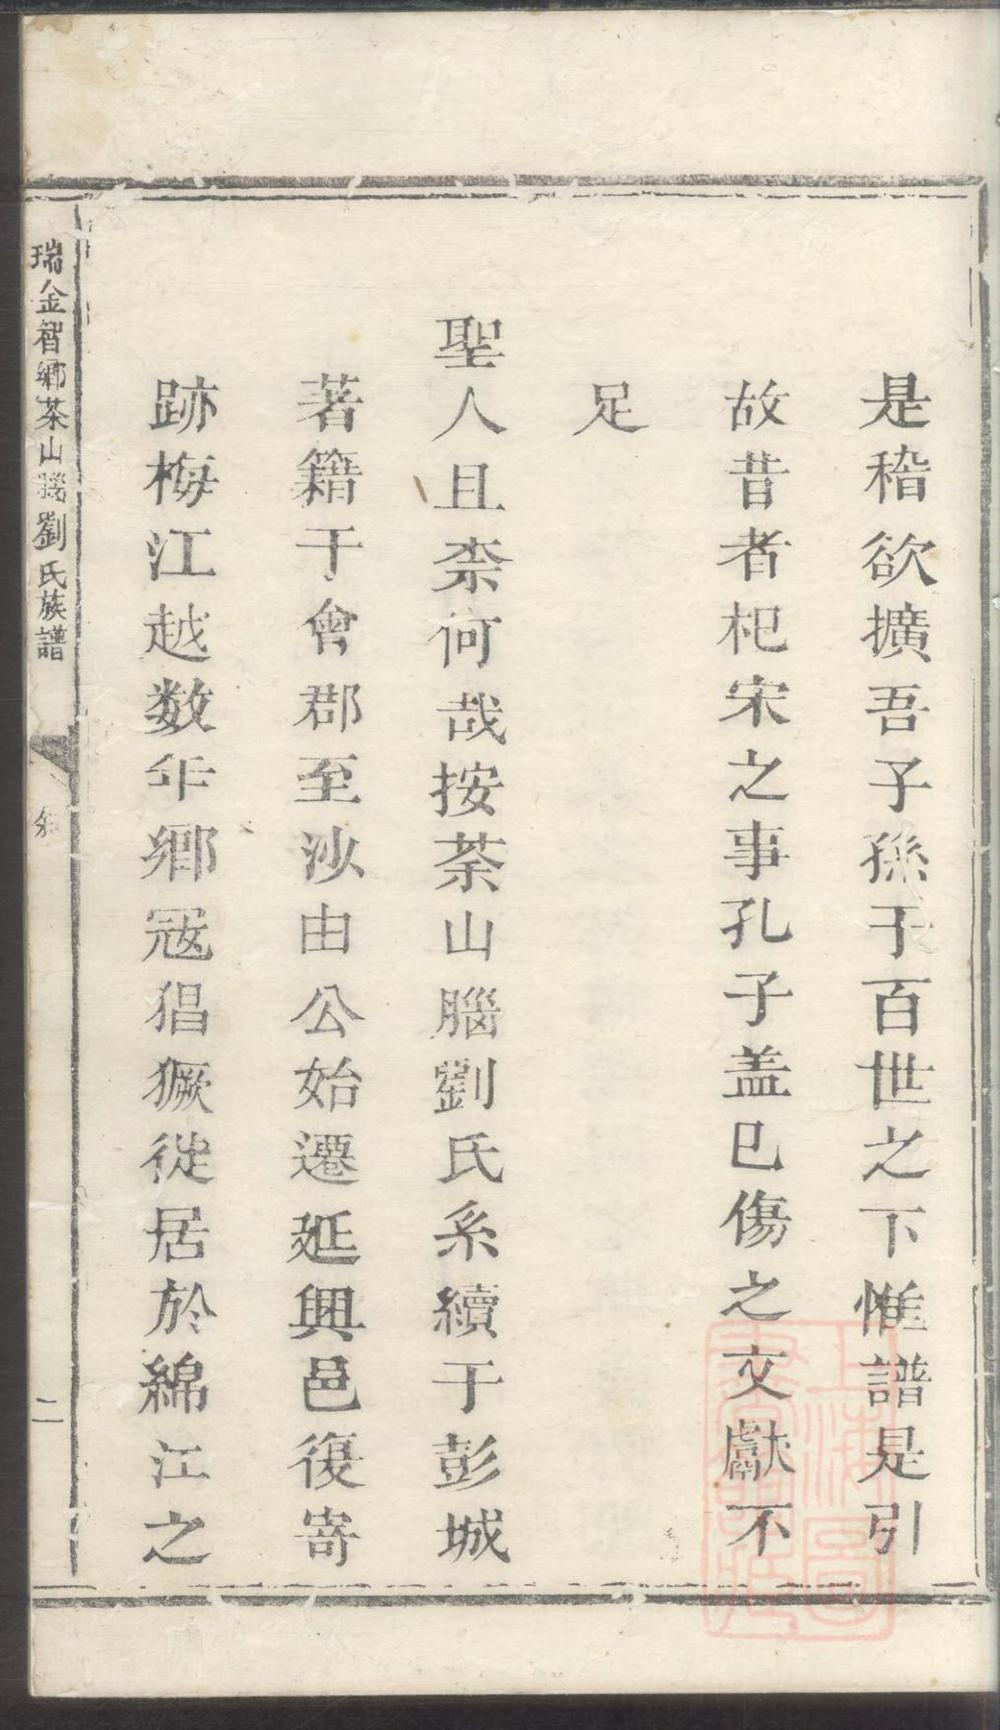 是稽欲擴吾子孫于百世之下惟譜是引
故昔者杞宋之事孔子盖已傷之文獻不
足
聖人且柰何哉按茶山腦劉氏系續于彭城
著籍于會郡至沙由公始遷延興邑復寄
跡梅江越数年鄉冦猖獗徙居於綿江之
瑞金智鄉茶山腦劉氏族譜
叙
二
上海圖書館藏